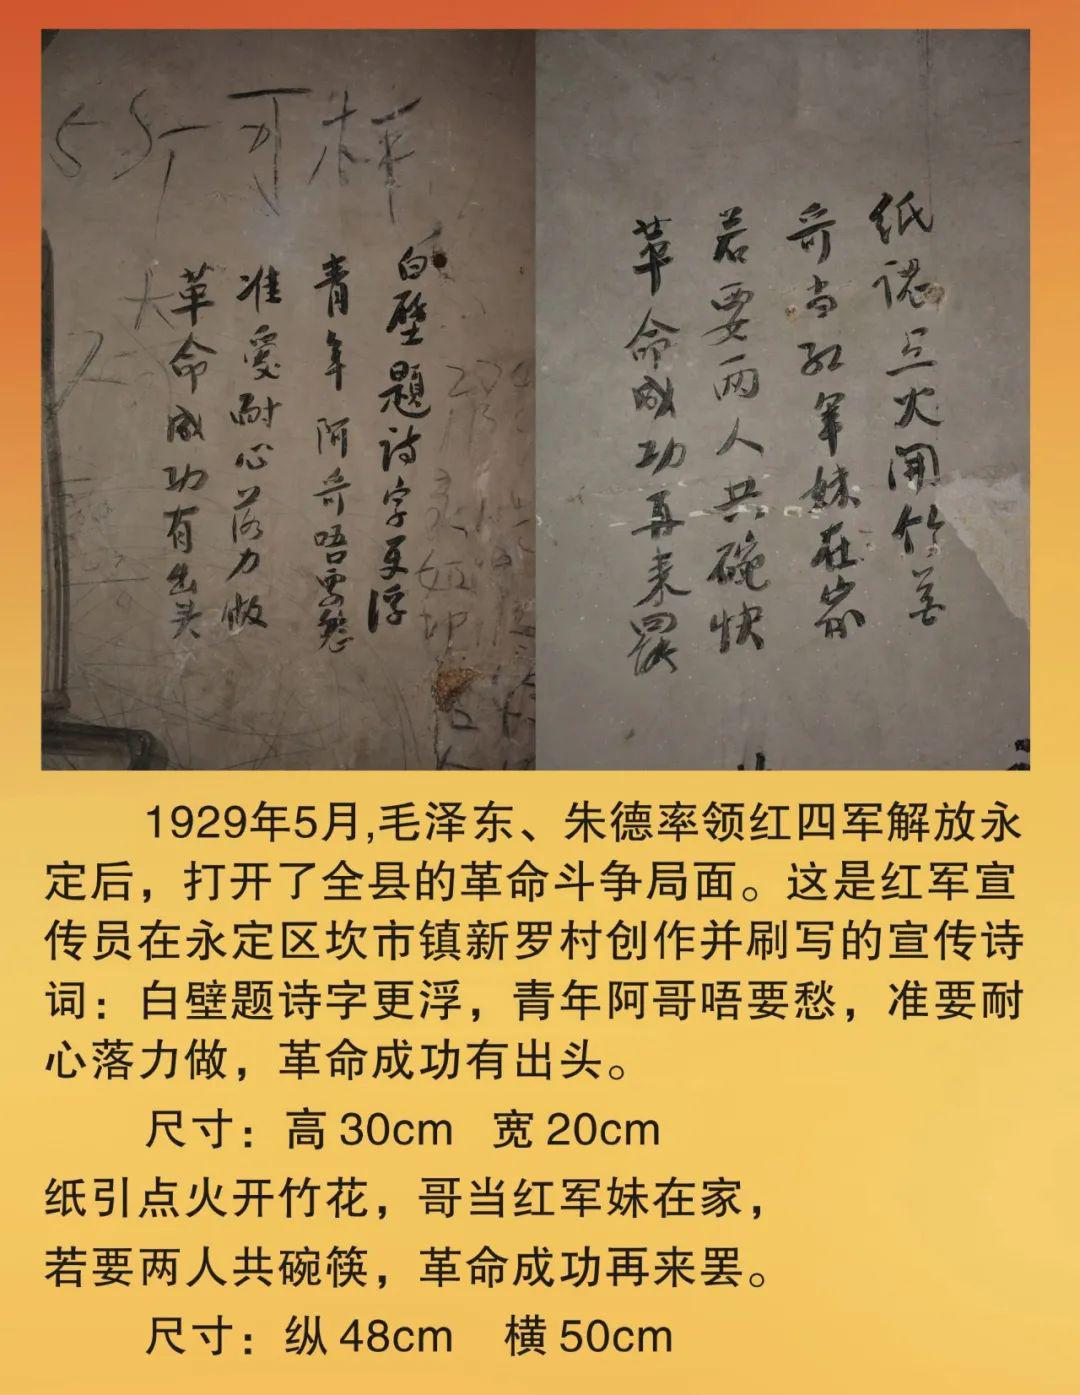 白壁題诗字更浮
青年阿哥唔要愁
准愛耐心落力做
革命成功有出头
纸 火開竹
哥当红軍妹在家
若要两人共碗快
革命成功再来罢
1929年5月,毛泽东、朱德率领红四军解放永
定后，打开了全县的革命斗争局面。这是红军宣
传员在永定区坎市镇新罗村创作并刷写的宣传诗
词：白壁题诗字更浮，青年阿哥唔要愁，准要耐
心落力做，革命成功有出头。
尺寸：高30cm 宽20cm
纸引点火开竹花，哥当红军妹在家，
若要两人共碗筷，革命成功再来罢。
尺寸：纵48cm 横50cm